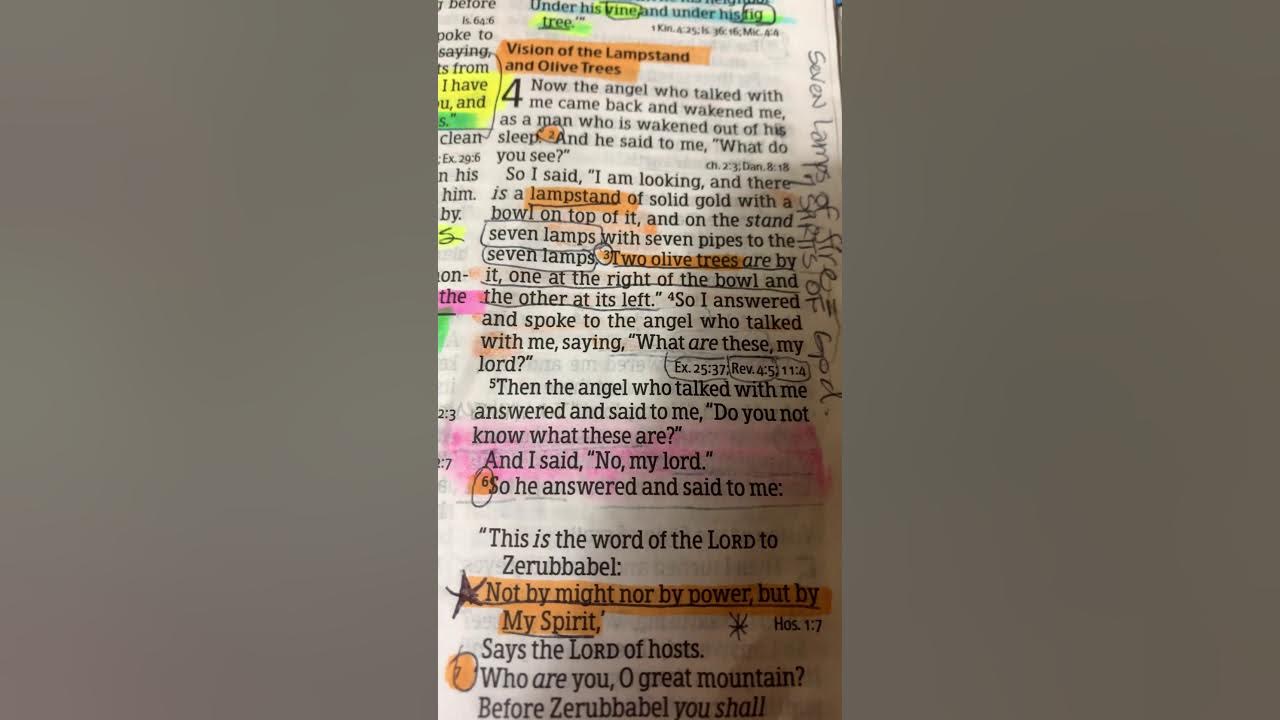 g before
Is. 64:6
poke to
saying,
ts from
I have
u, and
s."
clean
; Ex. 29:6
n his
him.
by.
on-
the
2:3
2:7
Under his vine and under his fig
tree.'"
1 Kin. 4:25; Is. 36:16; Mic. 4:4
Vision of the Lampstand
and Olive Trees
4 Now the angel who talked with
me came back and wakened me,
as a man who is wakened out of his
sleep. 2And he said to me, "What do
you see?"
ch. 2:3; Dan. 8:18
So I said, "I am looking, and there
is a lampstand of solid gold with a
bowl on top of it, and on the stand
seven lamps with seven pipes to the
seven lamps. 3Two olive trees are by
it, one at the right of the bowl and
the other at its left." 4So I answered
and spoke to the angel who talked
with me, saying, "What are these, my
lord?"
Ex. 25:37; Rev. 4:5; 11:4
5Then the angel who talked with me
answered and said to me, "Do you not
know what these are?"
And I said, "No, my lord."
6So he answered and said to me:
"This is the word of the LORD to
Zerubbabel:
'Not by might nor by power, but by
My Spirit,'
Hos. 1:7
Says the LORD of hosts.
7 'Who are you, O great mountain?
Before Zerubbabel you shall
Seven Lamps of fire =
7 Spirits of God.